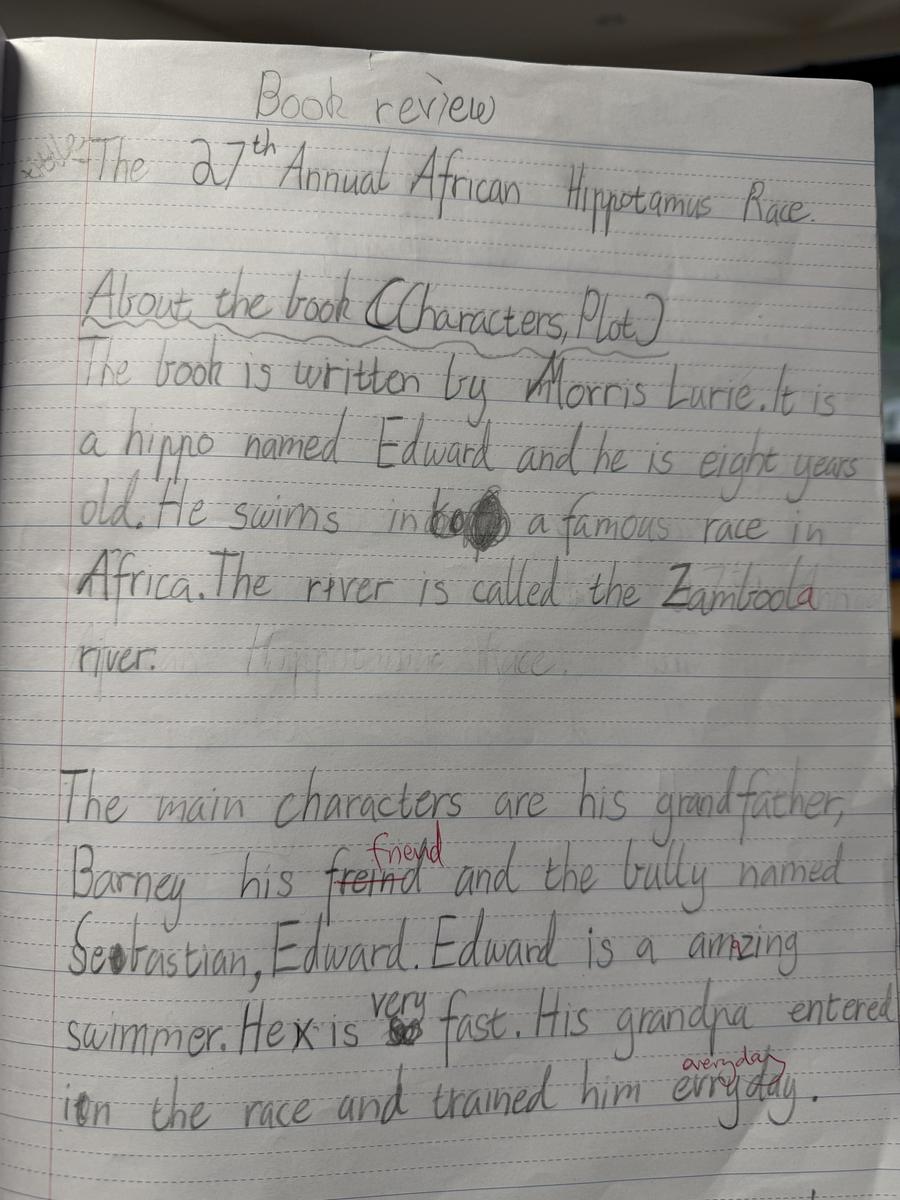 Book review
The 27th Annual African Hippotamus Race.
About the book (Characters, Plot)
The book is written by Morris Lurie. It is
a hippo named Edward and he is eight years
old. He swims in a famous race in
Africa. The river is called the Zamboola
river.
The main characters are his grandfather,
friend
Barney his freind and the bully named
Sebastian, Edward. Edward is a amazing
very
swimmer. He is fast. His grandpa entered
everyday
in the race and trained him evryday.